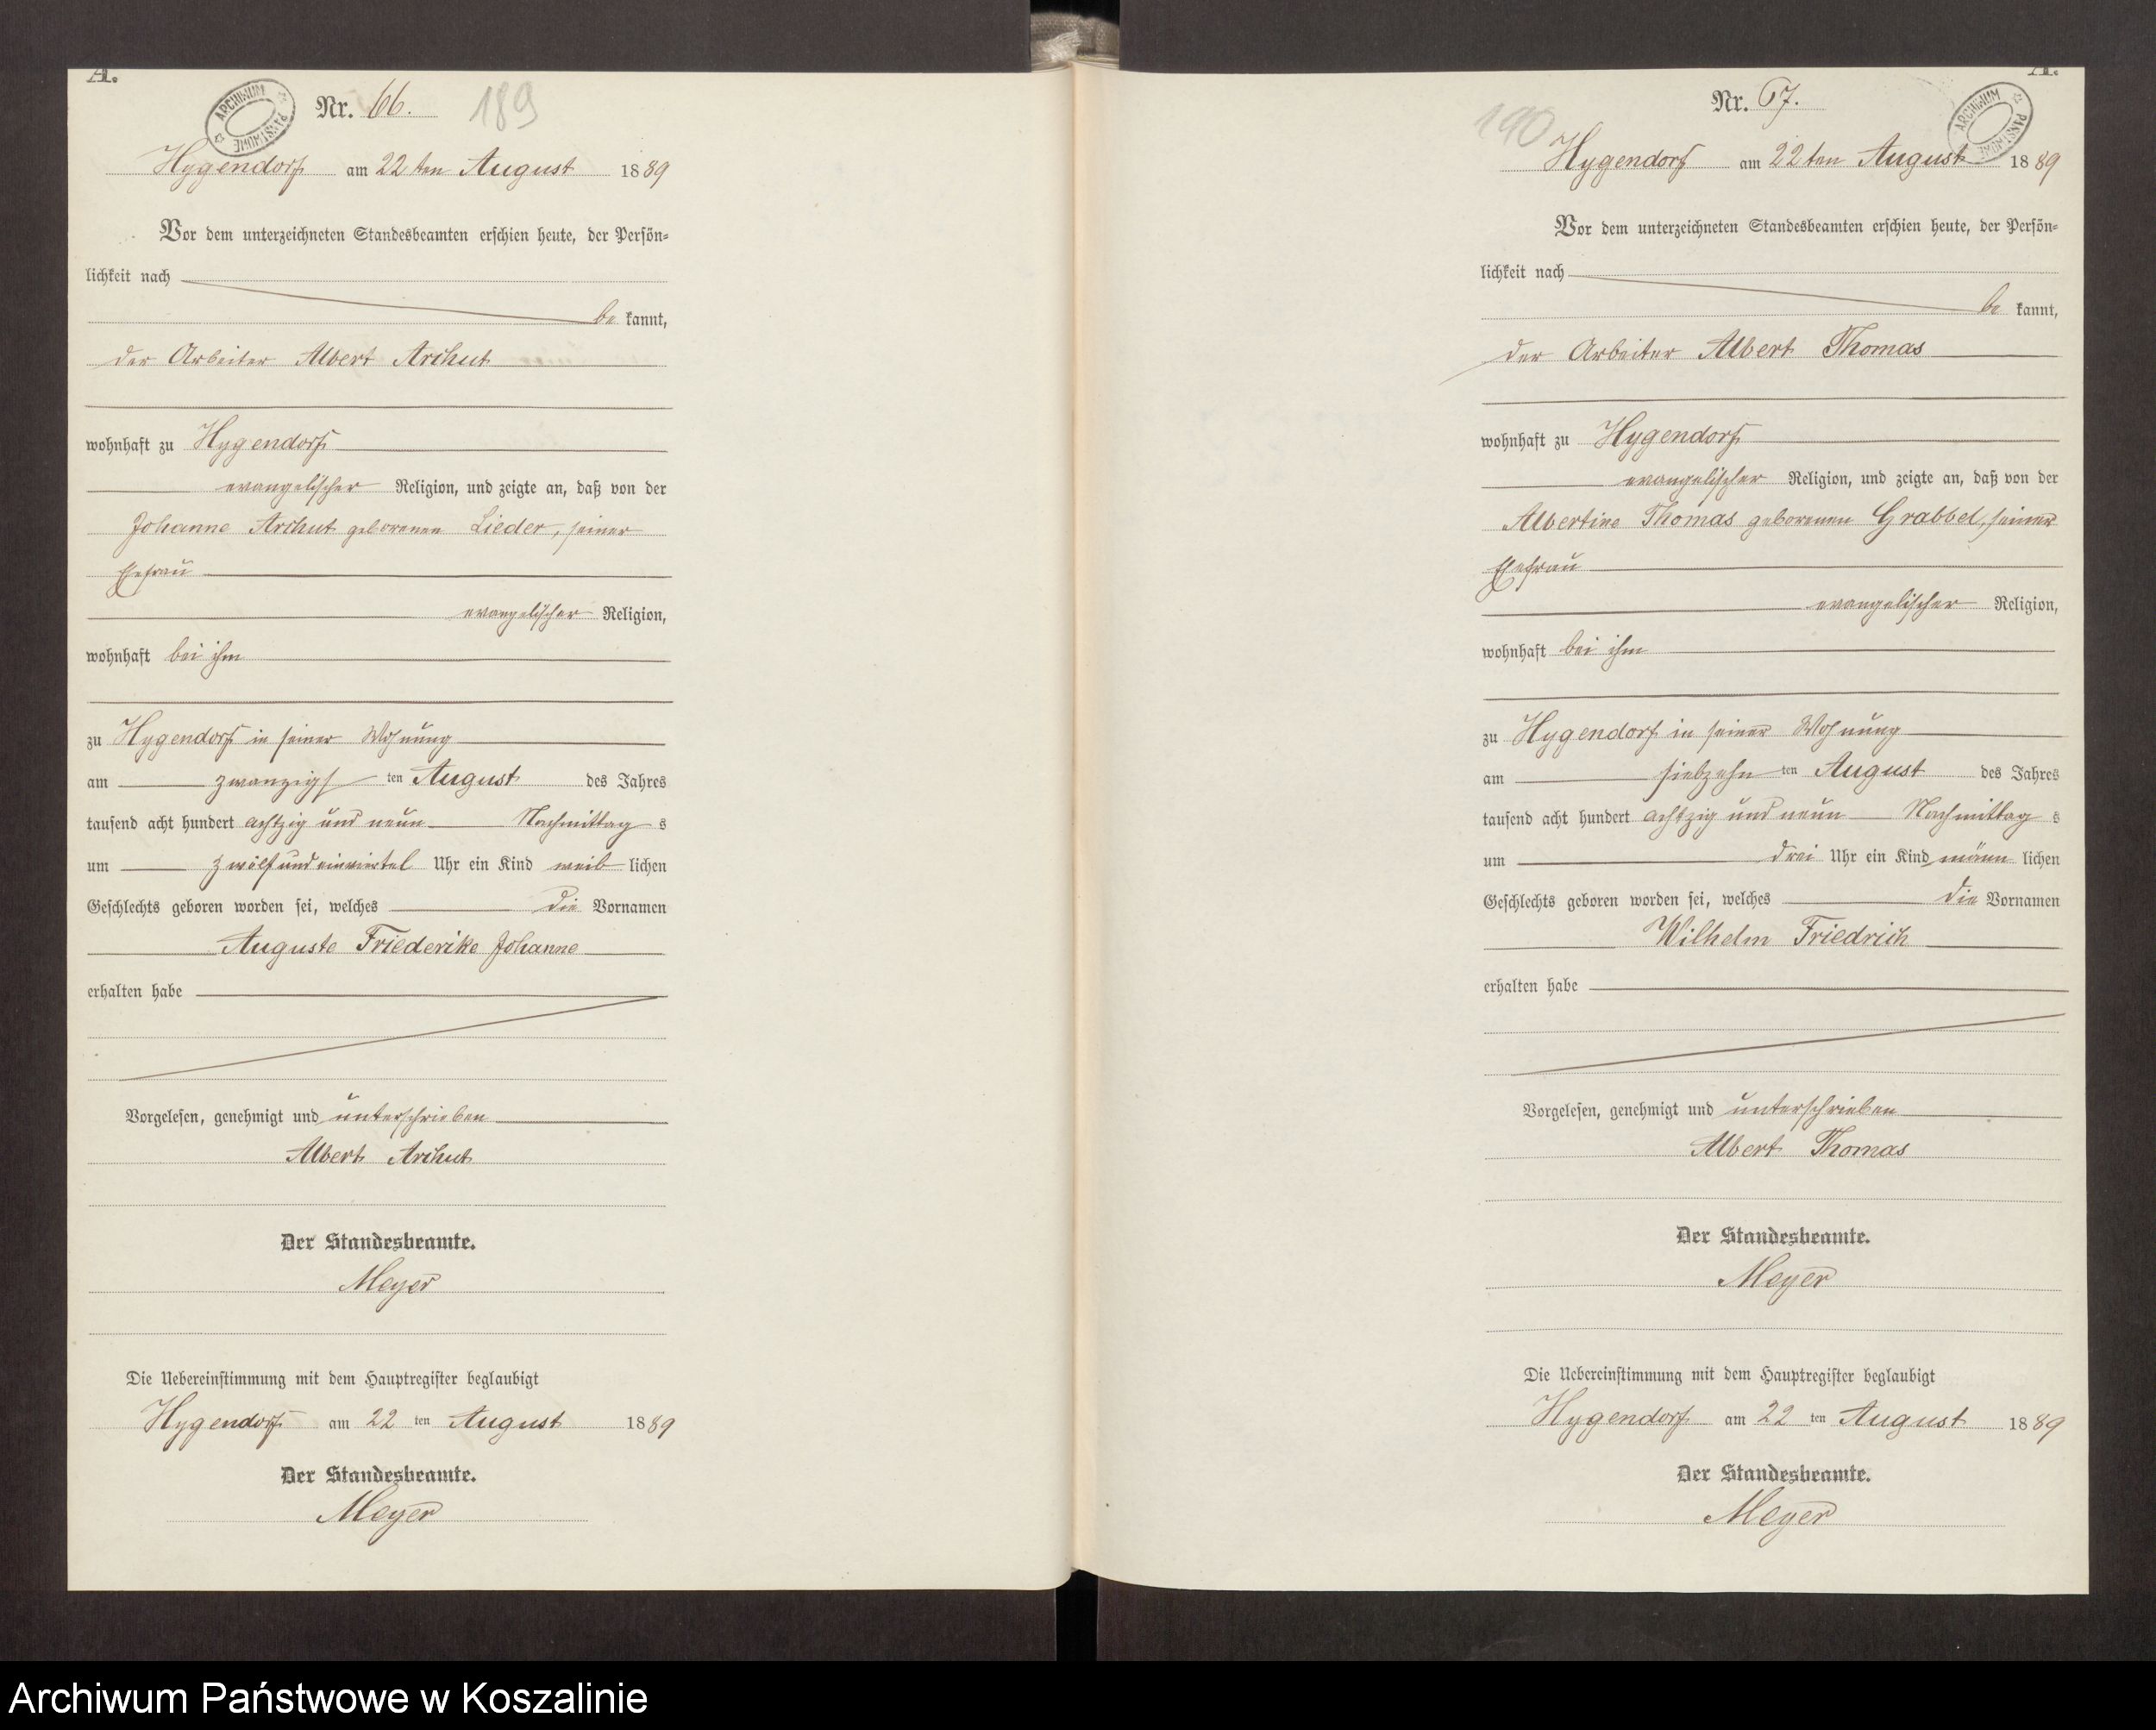 A.
ARCHIWUM PAŃSTWOWE
Nr. 66.
189
Hygendorf am 22 ten August 1889
Vor dem unterzeichneten Standesbeamten erschien heute, der Persön=
lichkeit nach
be kannt,
der Arbeiter Albert Archut
wohnhaft zu Hygendorf
evangelischer Religion, und zeigte an, daß von der
Johanne Archut geborenen Lieder, seiner
Ehefrau
evangelischer Religion,
wohnhaft bei ihm
zu Hygendorf in seiner Wohnung
am zwanzigs ten August des Jahres
tausend acht hundert achtzig und neun Nachmittag s
um zwölf und einviertel Uhr ein Kind weib lichen
Geschlechts geboren worden sei, welches die Vornamen
Auguste Friederike Johanne
erhalten habe
Vorgelesen, genehmigt und unterschrieben
Albert Archut
Der Standesbeamte.
Meyer
Die Uebereinstimmung mit dem Hauptregister beglaubigt
Hygendorf am 22 ten August 1889
Der Standesbeamte.
Meyer
A.
ARCHIWUM PAŃSTWOWE
Nr. 67.
190
Hygendorf am 22 ten August 1889
Vor dem unterzeichneten Standesbeamten erschien heute, der Persön=
lichkeit nach
be kannt,
der Arbeiter Albert Thomas
wohnhaft zu Hygendorf
evangelischer Religion, und zeigte an, daß von der
Albertine Thomas geborenen Grabbel, seiner
Ehefrau
evangelischer Religion,
wohnhaft bei ihm
zu Hygendorf in seiner Wohnung
am siebzehn ten August des Jahres
tausend acht hundert achtzig und neun Nachmittag s
um drei Uhr ein Kind männ lichen
Geschlechts geboren worden sei, welches die Vornamen
Wilhelm Friedrich
erhalten habe
Vorgelesen, genehmigt und unterschrieben
Albert Thomas
Der Standesbeamte.
Meyer
Die Uebereinstimmung mit dem Hauptregister beglaubigt
Hygendorf am 22 ten August 1889
Der Standesbeamte.
Meyer
Archiwum Państwowe w Koszalinie